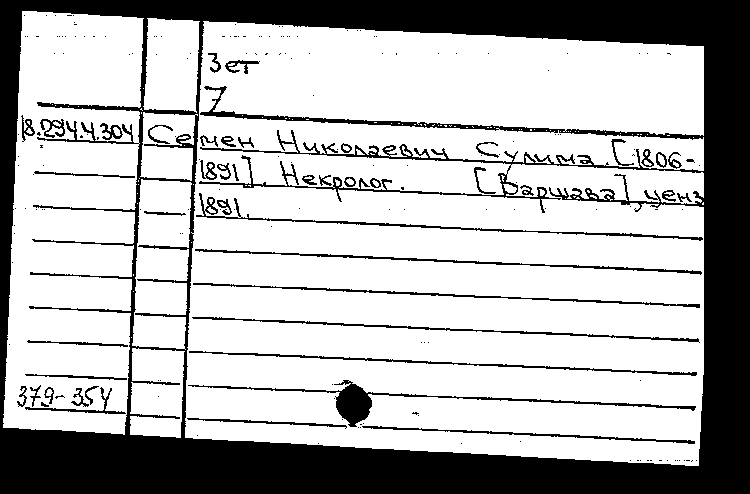 Зет
7
18.294.4.304 Семен Николаевич Сулима. [1806-
1891]. Некролог. [Варшава], ценз
1891.
379-354